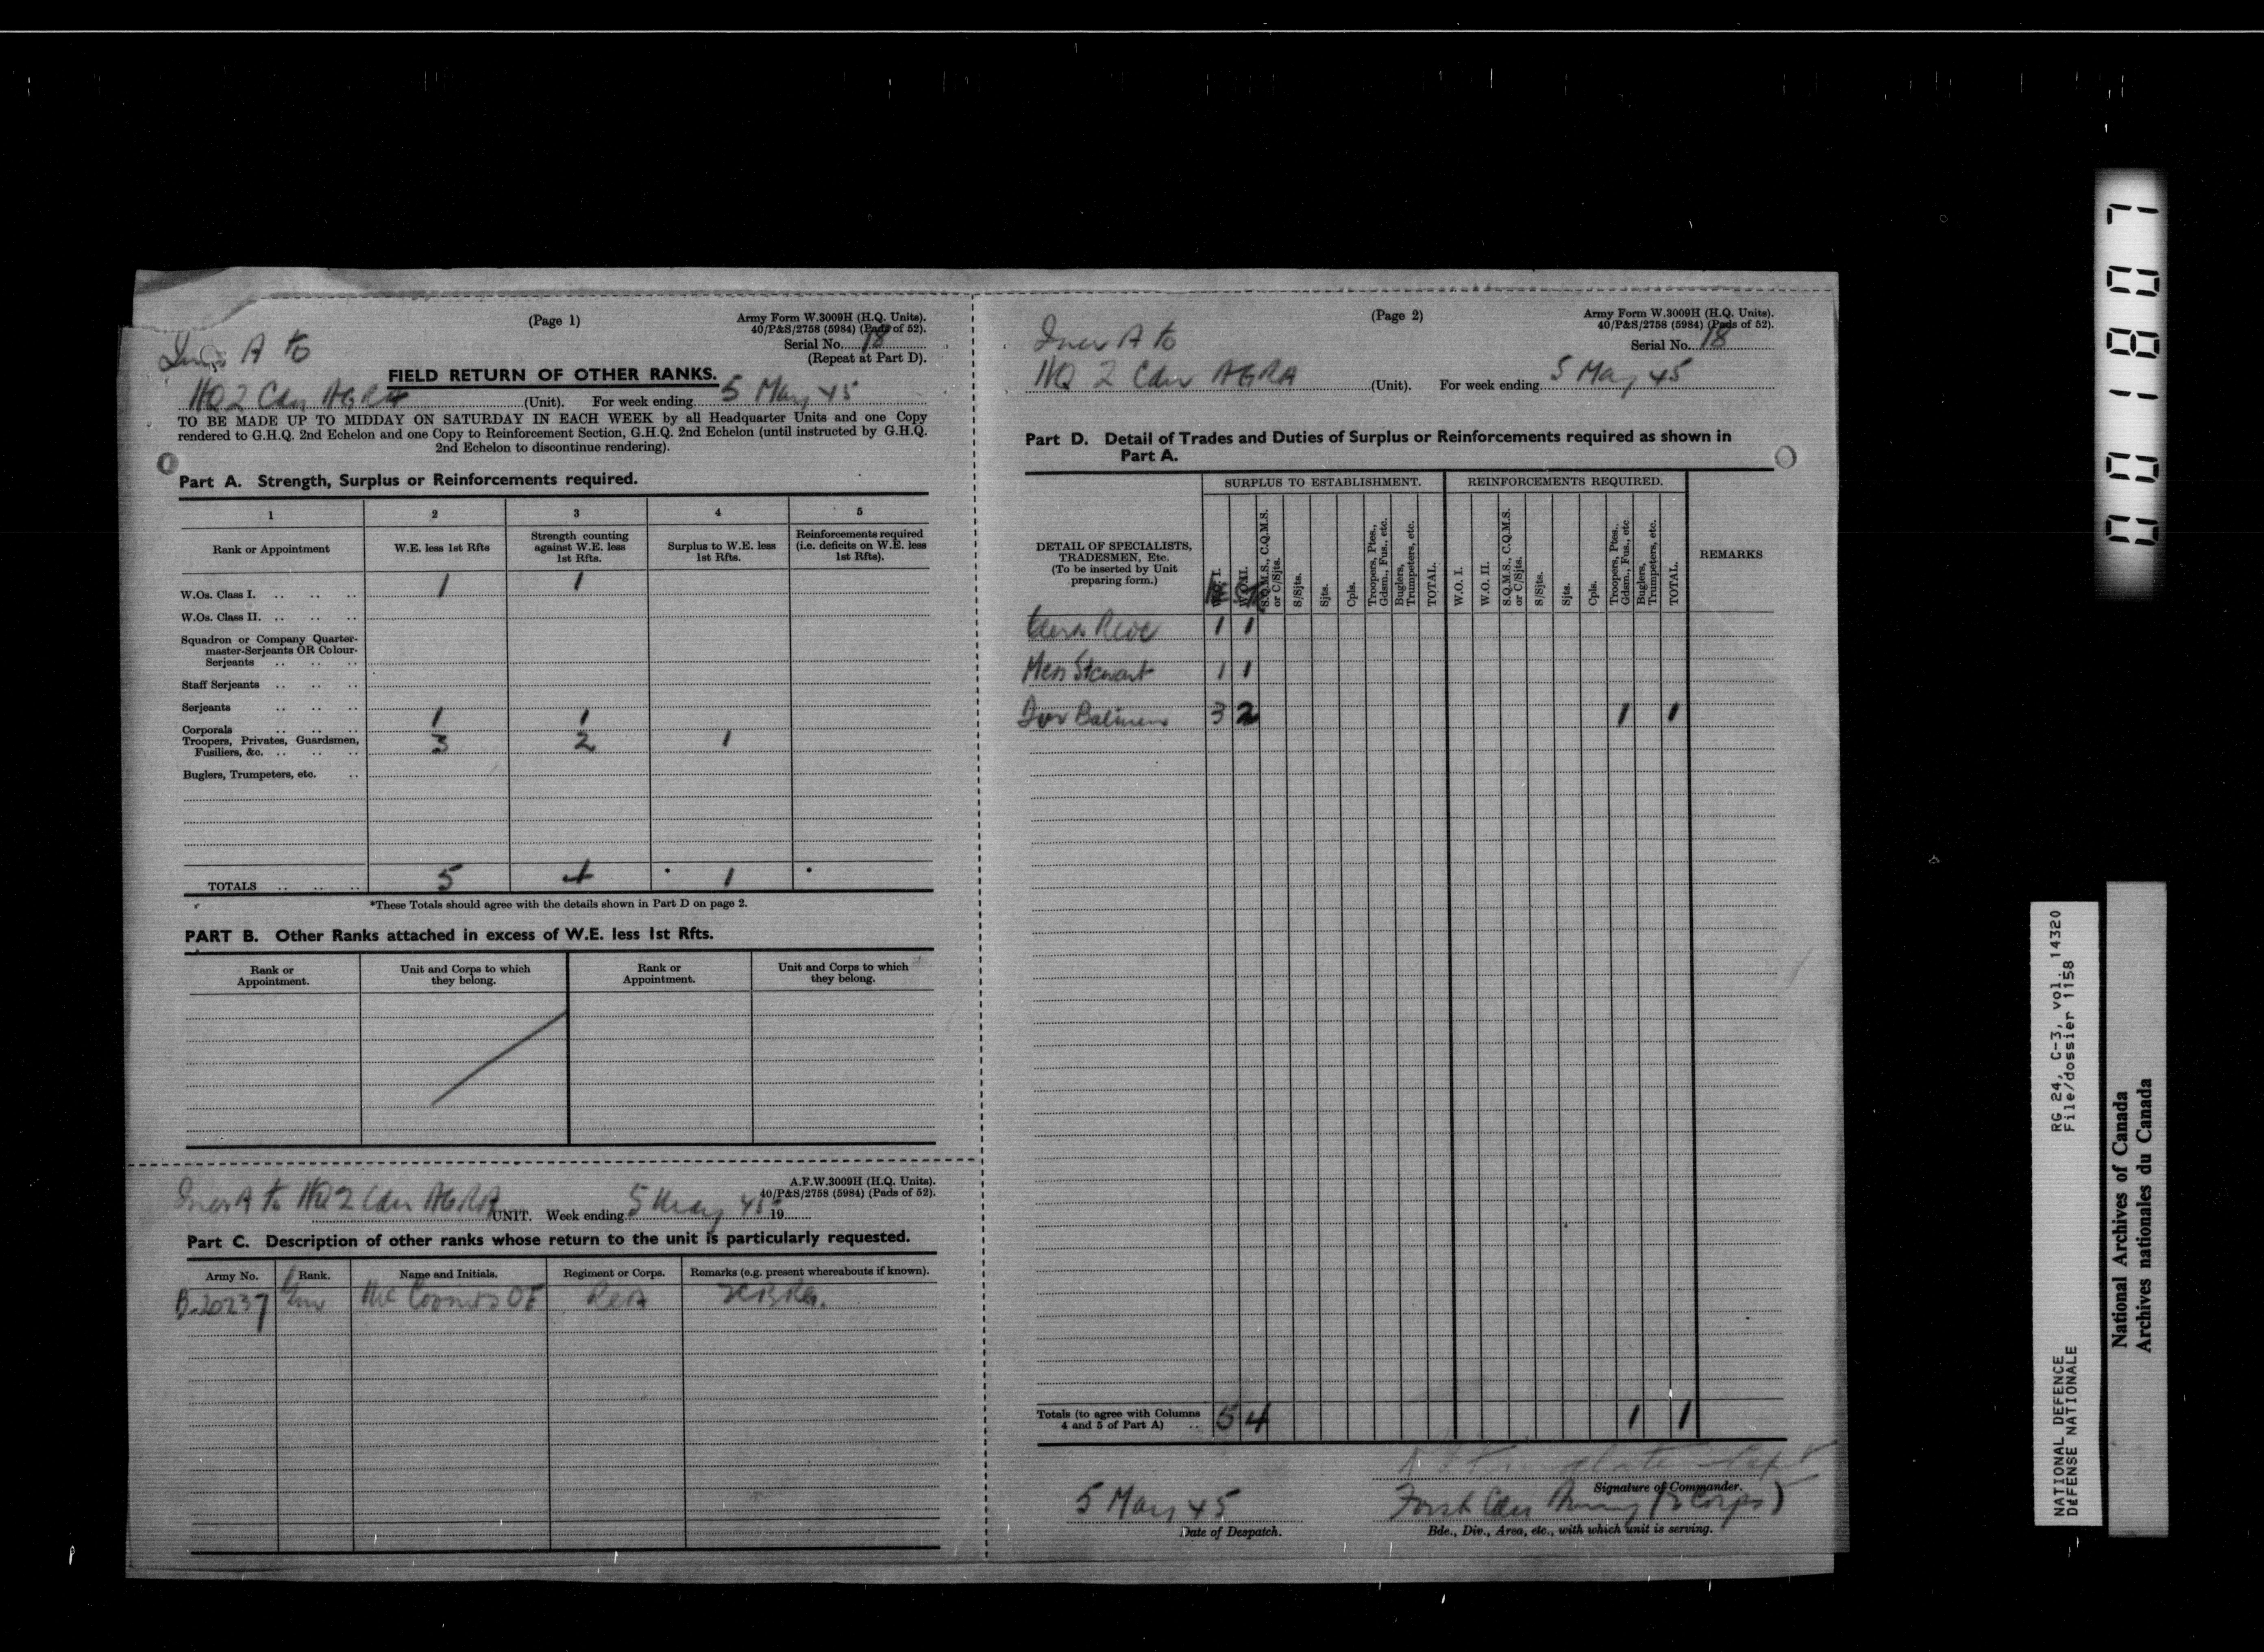 (Page 1)
Army Form W.3009H (H.Q. Units).
40/P&S/2758 (5984) (Pads of 52).
Serial No. 18
(Repeat at Part D).
A to
FIELD RETURN OF OTHER RANKS.
HQ 2 Cdn AGRA (Unit). For week ending 5 May 45
TO BE MADE UP TO MIDDAY ON SATURDAY IN EACH WEEK by all Headquarter Units and one Copy
rendered to G.H.Q. 2nd Echelon and one Copy to Reinforcement Section, G.H.Q. 2nd Echelon (until instructed by G.H.Q.
2nd Echelon to discontinue rendering).
Part A. Strength, Surplus or Reinforcements required.
1 2 3 4 5
Rank or Appointment
W.E. less 1st Rfts
Strength counting
against W.E. less
1st Rfts.
Surplus to W.E. less
1st Rfts.
Reinforcements required
(i.e. deficits on W.E. less
1st Rfts).
W.Os. Class I. .. .. .. 1 1
W.Os. Class II. .. .. ..
Squadron or Company Quarter-
master-Serjeants OR Colour-
Serjeants .. .. ..
Staff Serjeants .. .. ..
Serjeants .. .. ..
Corporals .. .. .. 1 1
Troopers, Privates, Guardsmen,
Fusiliers, &c. .. .. .. 3 2 1
Buglers, Trumpeters, etc. ..
TOTALS .. .. .. 5 4 * 1 *
*These Totals should agree with the details shown in Part D on page 2.
PART B. Other Ranks attached in excess of W.E. less 1st Rfts.
Rank or
Appointment.
Unit and Corps to which
they belong.
Rank or
Appointment.
Unit and Corps to which
they belong.
A.F.W.3009H (H.Q. Units).
40/P&S/2758 (5984) (Pads of 52).
A to HQ 2 Cdn AGRA UNIT. Week ending 5 May 45 19
Part C. Description of other ranks whose return to the unit is particularly requested.
Army No. Rank. Name and Initials. Regiment or Corps. Remarks (e.g. present whereabouts if known).
B-20237
(Page 2)
Army Form W.3009H (H.Q. Units).
40/P&S/2758 (5984) (Pads of 52).
Serial No. 18
A to
HQ 2 Cdn AGRA (Unit). For week ending 5 May 45
Part D. Detail of Trades and Duties of Surplus or Reinforcements required as shown in
Part A.
DETAIL OF SPECIALISTS,
TRADESMEN, Etc.
(To be inserted by Unit
preparing form.)
SURPLUS TO ESTABLISHMENT.
W.O. I.
W.O. II.
S.Q.M.S., C.Q.M.S.
or C/Sjts.
S/Sjts.
Sjts.
Cpls.
Troopers, Ptes.,
Gdsm., Fus., etc.
Buglers,
Trumpeters, etc.
TOTAL.
REINFORCEMENTS REQUIRED.
W.O. I.
W.O. II.
S.Q.M.S., C.Q.M.S.
or C/Sjts.
S/Sjts.
Sjts.
Cpls.
Troopers, Ptes.,
Gdsm., Fus., etc
Buglers,
Trumpeters, etc.
TOTAL.
REMARKS
1 1
Mess Stewart 1 1
Batmen 3 2 1 1
Totals (to agree with Columns
4 and 5 of Part A) .. 5 4 1 1
Capt
Signature of Commander.
5 May 45
Date of Despatch.
First Cdn Army (2 Corps)
Bde., Div., Area, etc., with which unit is serving.
001807
RG 24, C-3, vol. 14320
File/dossier 1158
NATIONAL DEFENCE
DEFENSE NATIONALE
National Archives of Canada
Archives nationales du Canada